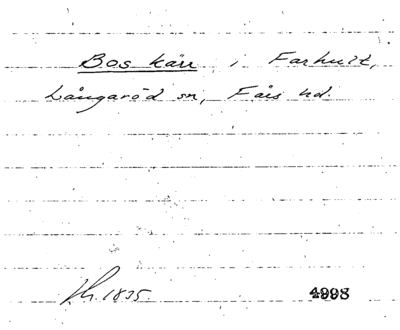 Bos kärr i Farhult,
Långaröd sn, Färs hd.
1835.
4998